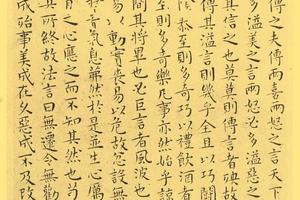 傳之夫傳兩喜兩怒之言天下
多溢美之言兩怒必多溢惡之
其信之也莫莫則傳言者殃故
傳其溢言則幾乎全且以巧鬥
陰泰至則多奇巧以禮飲酒者
至則多奇樂凡事亦然始乎諒
簡其將畢也必巨言者風波也
易以動實喪易以危故忿設無
音氣息茀然於是並生心厲
肖之心應之而不知其然也苟
其所終故法言曰無遷令無勸
成殆事美成在久惡成不及改